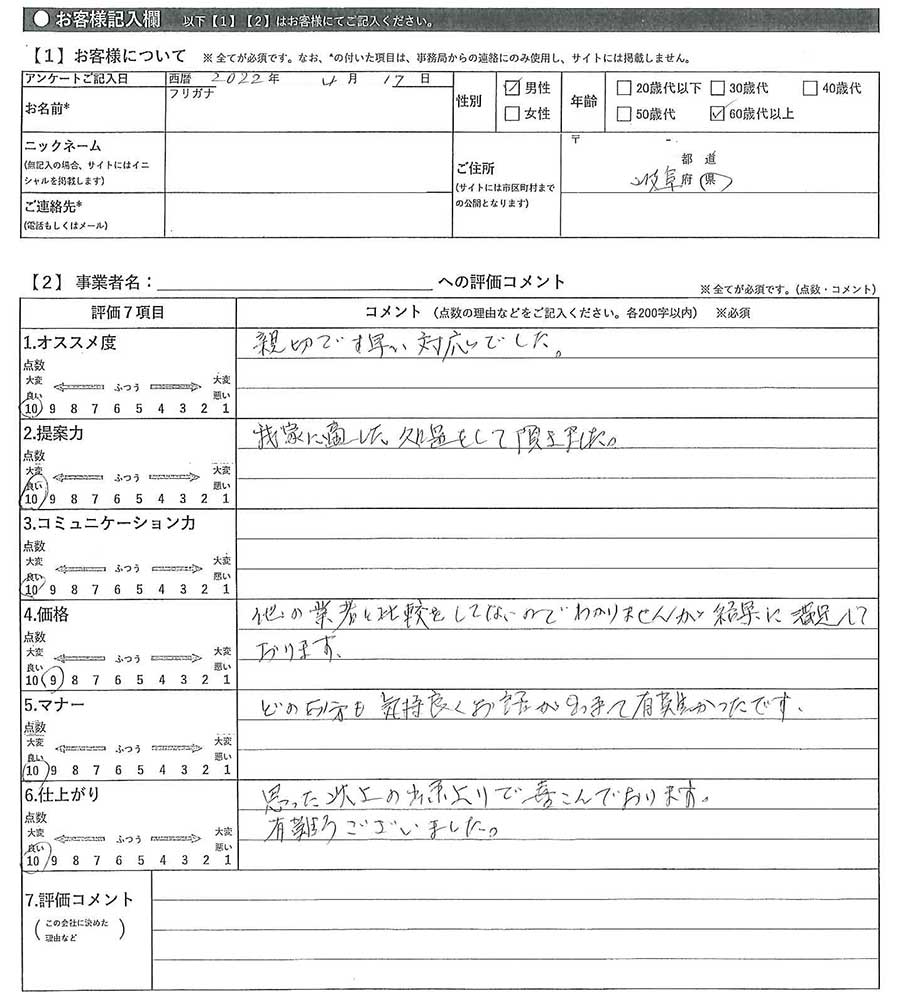 ● お客様記入欄 以下【1】【2】はお客様にてご記入ください。
【1】お客様について ※ 全てが必須です。なお、*の付いた項目は、事務局からの連絡にのみ使用し、サイトには掲載しません。
アンケートご記入日 西暦 2022 年 4 月 17 日
お名前* フリガナ
性別 ☑ 男性 □ 女性
年齢 □ 20歳代以下 □ 30歳代 □ 40歳代
□ 50歳代 ☑ 60歳代以上
ニックネーム
(無記入の場合、サイトにはイニ
シャルを掲載します)
ご連絡先*
(電話もしくはメール)
ご住所
(サイトには市区町村まで
の公開となります)
〒 -
都 道
岐阜 府 県
【2】 事業者名: への評価コメント
※ 全てが必須です。(点数・コメント)
評価7項目 コメント (点数の理由などをご記入ください。各200字以内) ※必須
1.オススメ度
点数
大変 ふつう 大変
良い 悪い
10 9 8 7 6 5 4 3 2 1
親切です早い対応いでした。
2.提案力
点数
大変 ふつう 大変
良い 悪い
10 9 8 7 6 5 4 3 2 1
我家に適した処置をして頂きました。
3.コミュニケーション力
点数
大変 ふつう 大変
良い 悪い
10 9 8 7 6 5 4 3 2 1
4.価格
点数
大変 ふつう 大変
良い 悪い
10 9 8 7 6 5 4 3 2 1
他の業者と比較をしてないのでわかりませんが結果に満足して
おります、
5.マナー
点数
大変 ふつう 大変
良い 悪い
10 9 8 7 6 5 4 3 2 1
どの方も気持良くお話ができて有難かったです、
6.仕上がり
点数
大変 ふつう 大変
良い 悪い
10 9 8 7 6 5 4 3 2 1
思った以上の出来上りで喜こんでおります。
有難うございました。
7.評価コメント
(この会社に決めた
理由など)